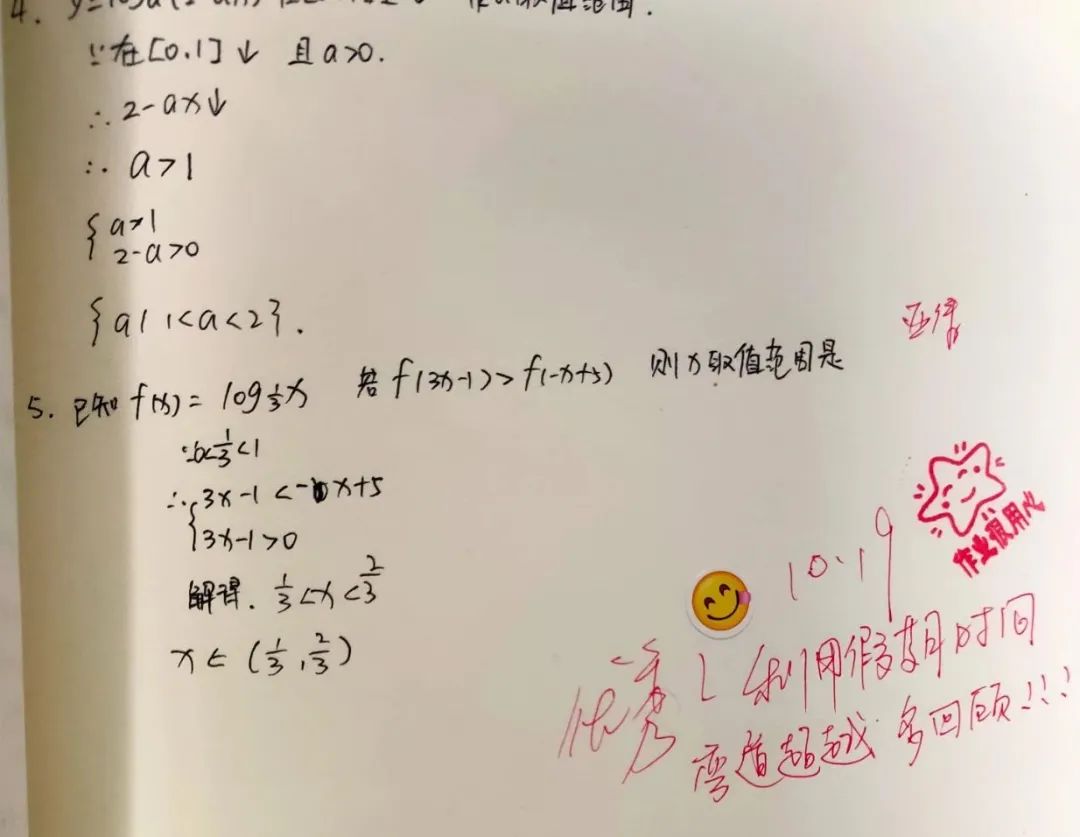 4. y=loga(2-ax)
∵在[0,1]↓ 且a>0.
∴2-ax↓
∴a>1
{a>1
2-a>0
{a|1<a<2}.
5. 已知f(x)=log⅓x 若f(3x-1)>f(-x+5) 则x取值范围是
∵0<1/3<1
∴{3x-1<-x+5
3x-1>0
解得. 1/3<x<2/3
x∈(1/3,2/3)
作业很用心
10.19
优秀! 利用假期时间
弯道超越 多回顾!!!